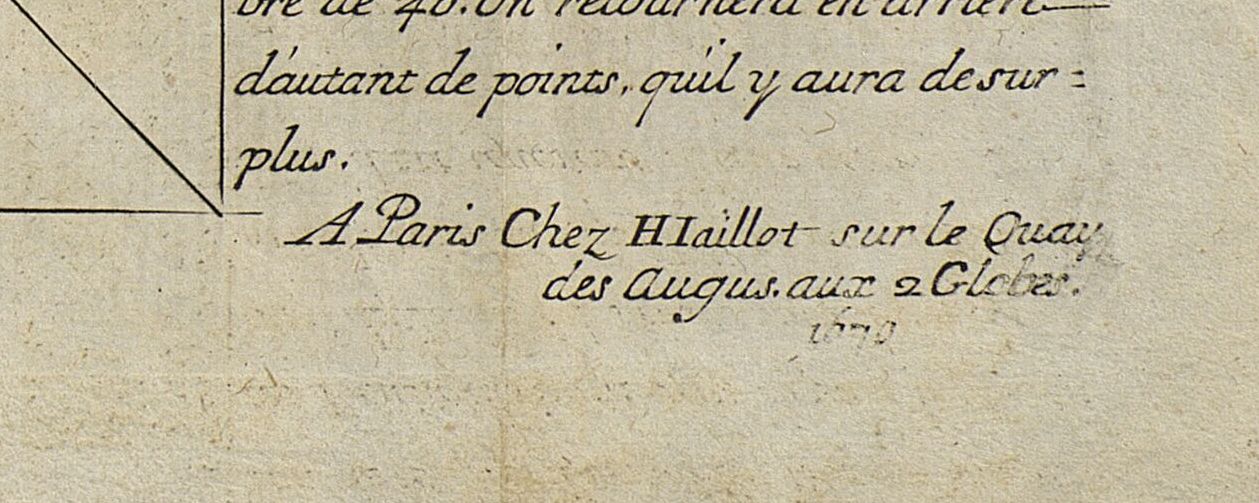 bre de 40. on retournera en arriere
d'autant de points, qu'il y aura de sur =
plus.
A Paris Chez HIaillot sur le Quay
des Augus. aux 2 Globes.
1670